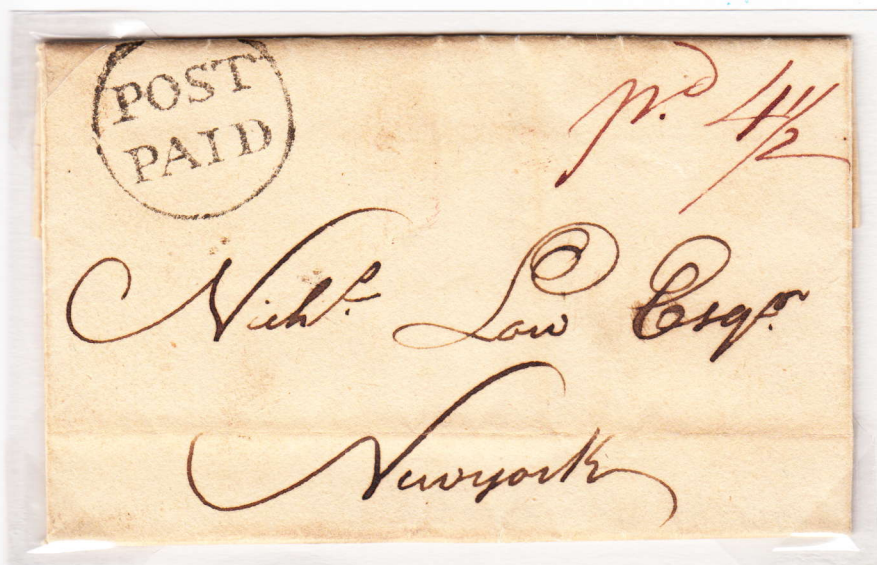 POST
PAID
pd. 4 1/2
Nichs. Low Esqr.
Newyork